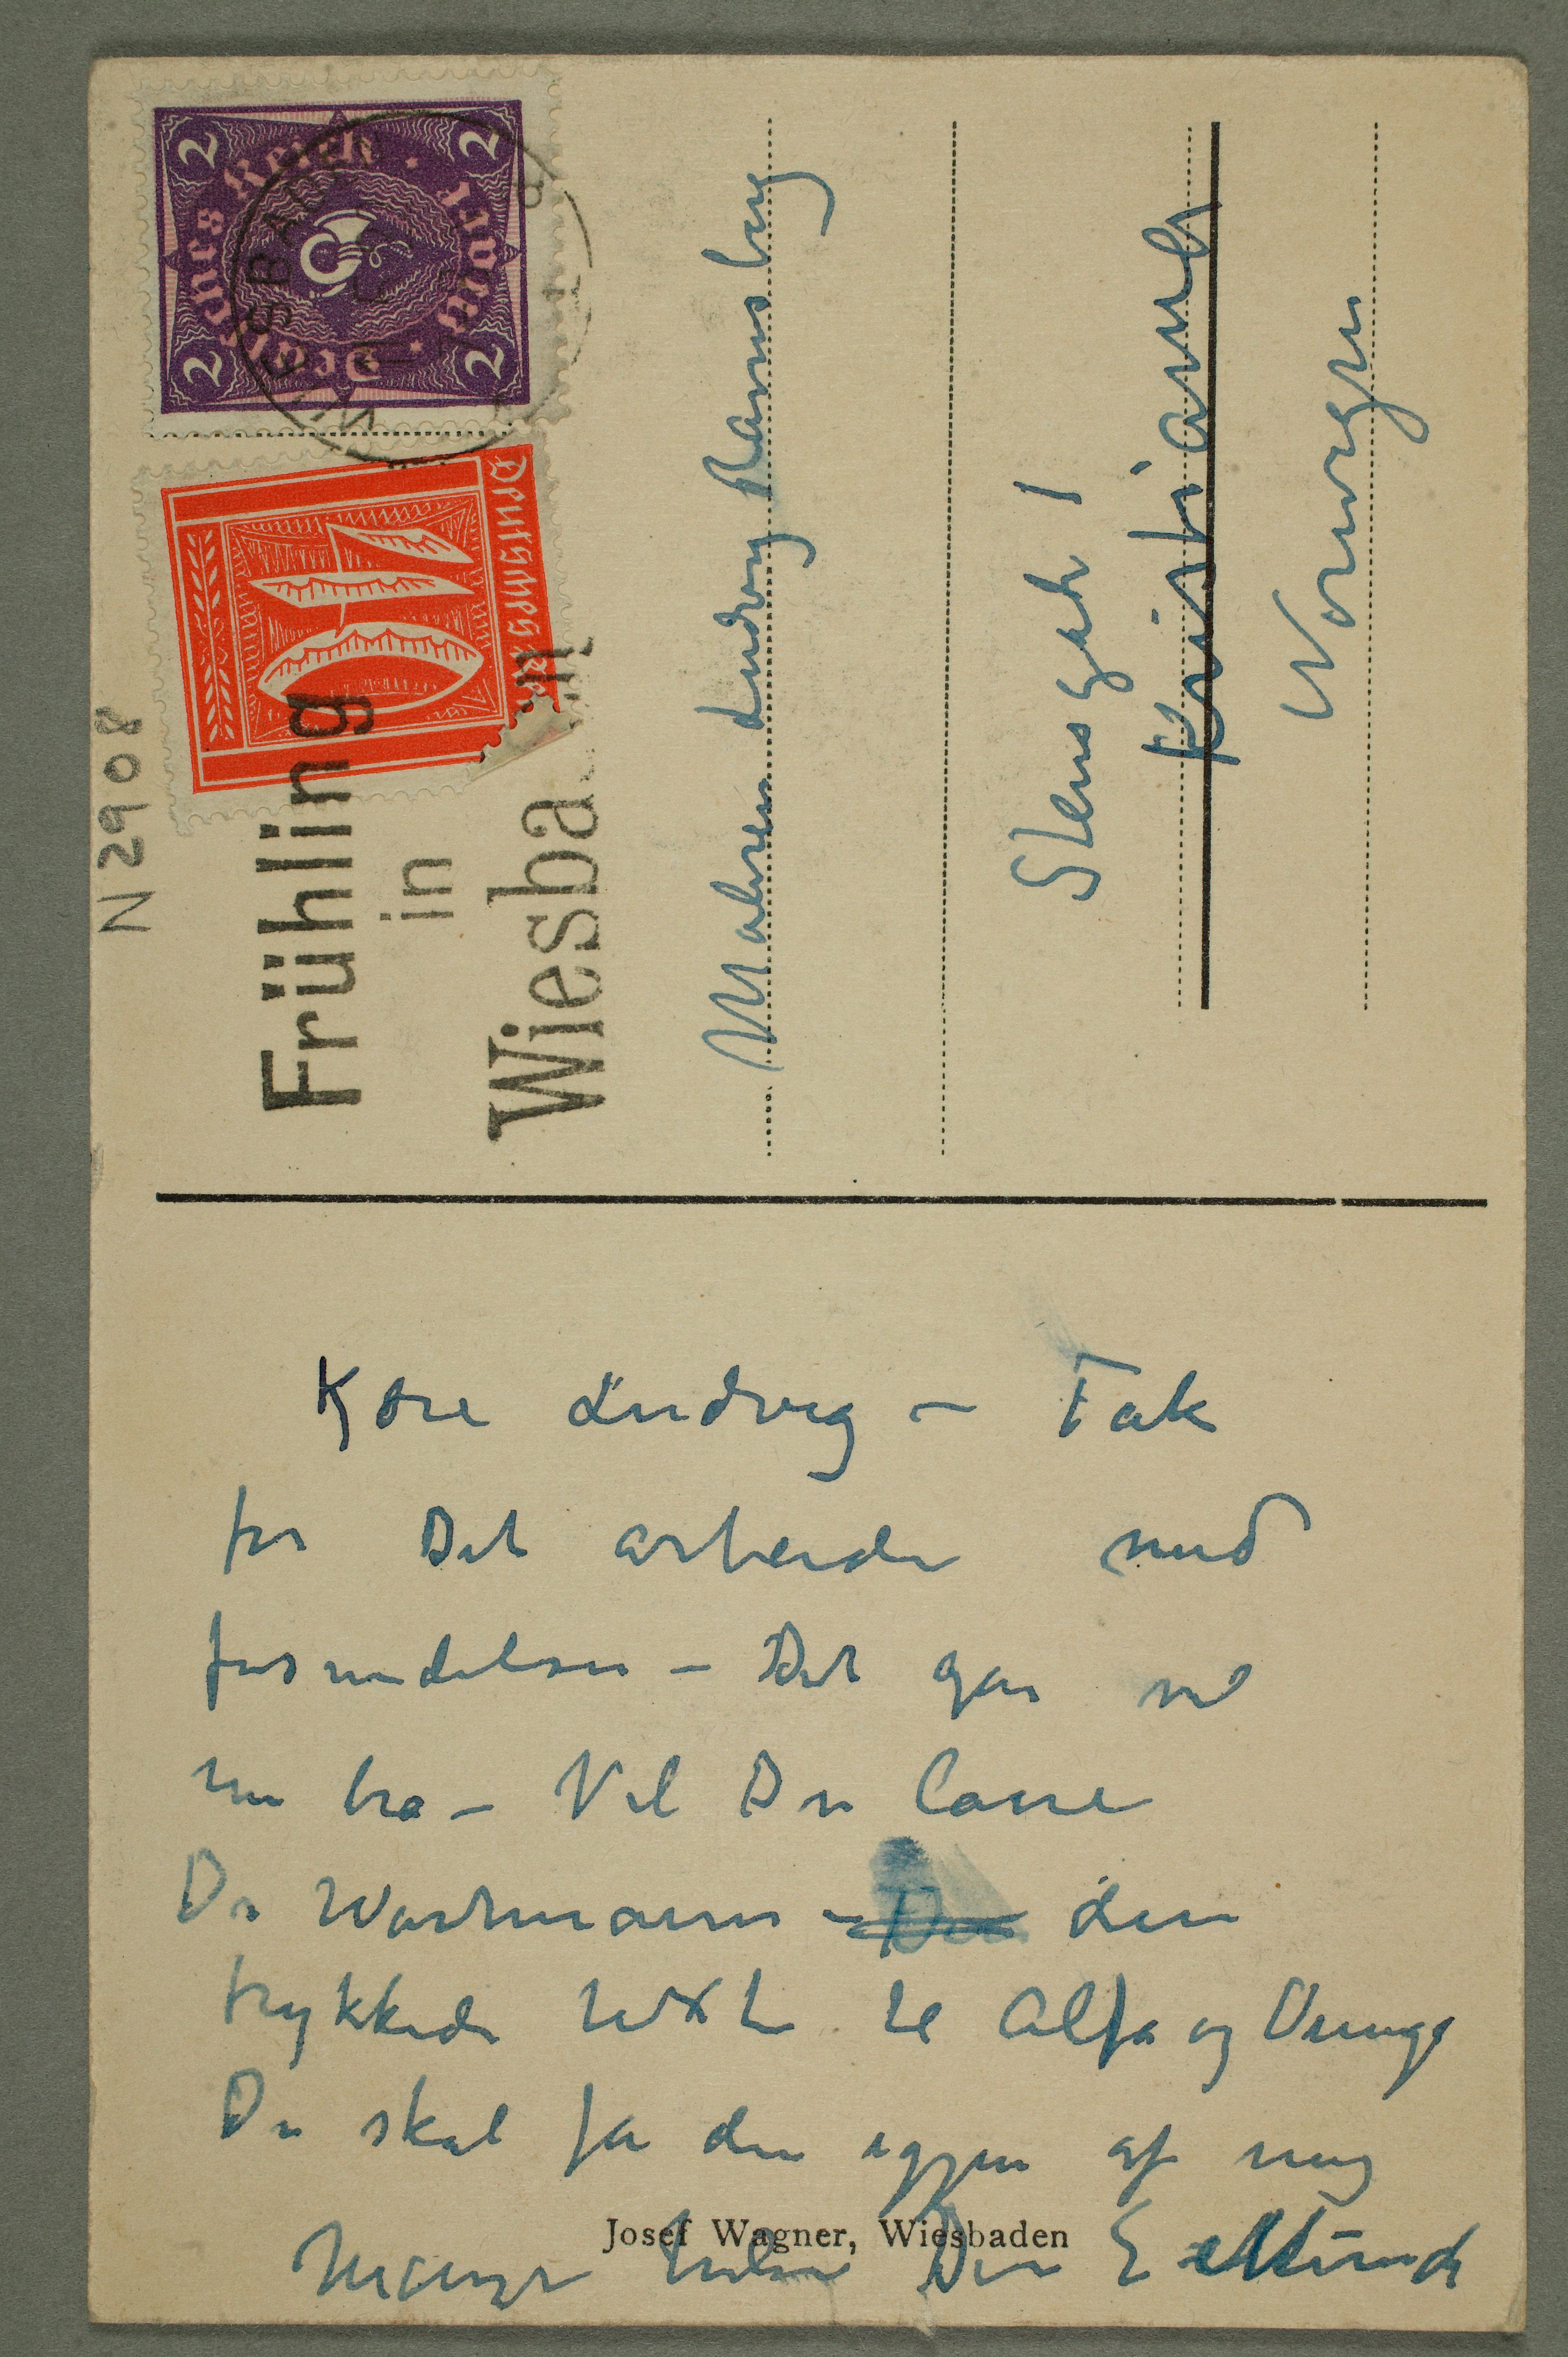 N 2908
Deutsches Reich
2 2 2 2
2 Mark
10
WIESBADEN
Frühling
in
Wiesba
Maleren Ludvig Ravensberg
Stensgate 1
Kristiania
Norwegen
Kjære Ludvig – Tak
for Det arbeide med
forsendelsen – Det går nå
nu bra – Vil Du laane
Dr Wartmann – den
trykkede text til Alfa og Omega
Du skal få den igjen af mig
Mange hilsen Din E Munch
Josef Wagner, Wiesbaden